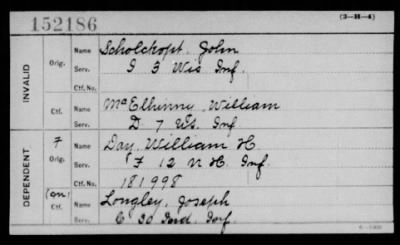 152186
(3—H—4)
INVALID
Orig.
Name Scholckopt, John
Serv. I 3 Wis Inf.
Ctf. No.
Ctf.
Name McElhinne, William
Serv. D 7 Inf
DEPENDENT
F
Orig.
Name Day, William H.
Serv. F 12 N H. Inf.
Ctf. No. 181998
(on)
Ctf.
Name Longley, Joseph
Serv. C 30 Ind. Inf